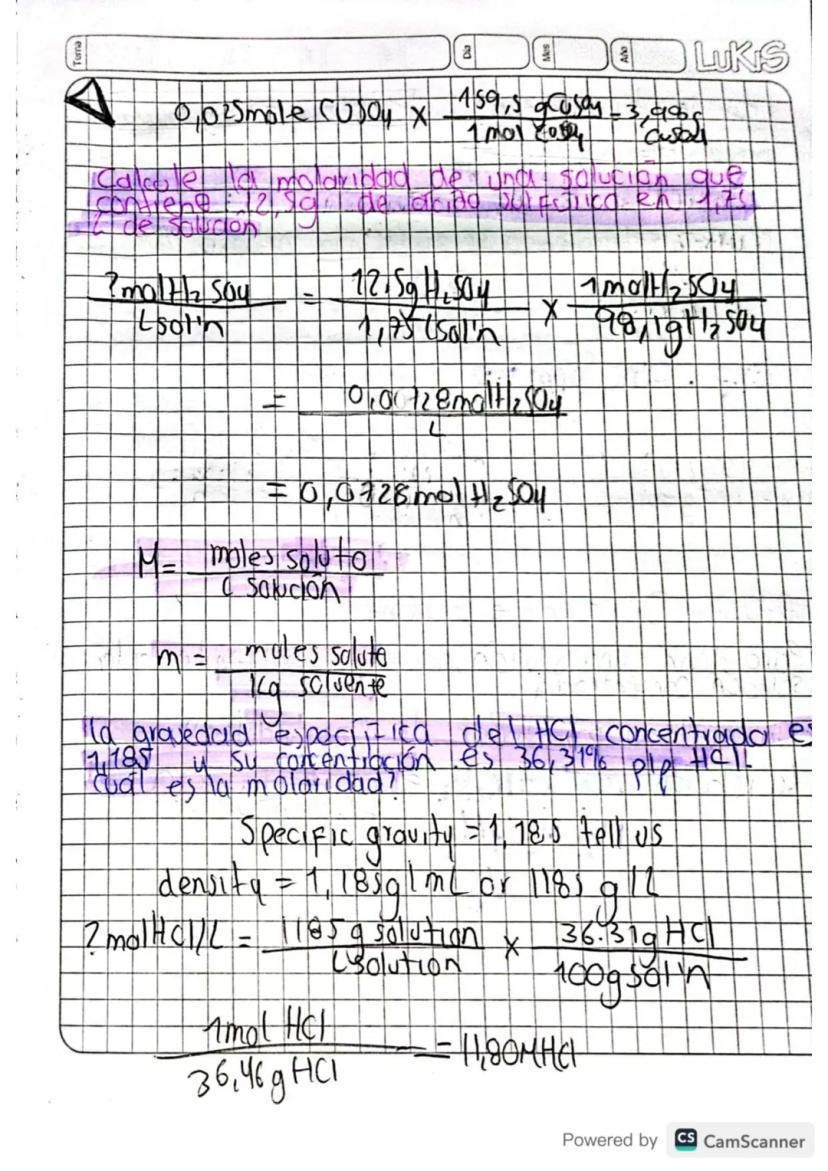 Tema Día Mes Año LUKIS
0,025mole CUSO4 x 159,5 gCuSO4 / 1 mol CuSO4 = 3,98g CuSO4
Calcule la molaridad de una solución que
contiene 12,5g de ácido sulfúrico en 1,75
L de solución
?molH2SO4 / Lsol'n = 12.5gH2SO4 / 1,75 Lsol'n x 1molH2SO4 / 98,1gH2SO4
= 0,00728molH2SO4 / L
= 0,0728 mol H2SO4
M= moles soluto / L solución
m = moles solute / Kg solvente
la gravedad específica del HCl concentrado es
1,185 y su concentración es 36,31% p/p HCl.
cuál es la molaridad?
Specific gravity = 1,185 tell us
density = 1,185g/mL or 1185 g/L
?molHCl/L = 1185 g solution / Lsolution x 36.31g HCl / 100gsol'n
1mol HCl / 36,46 g HCl = 11,80MHCl
Powered by CS CamScanner